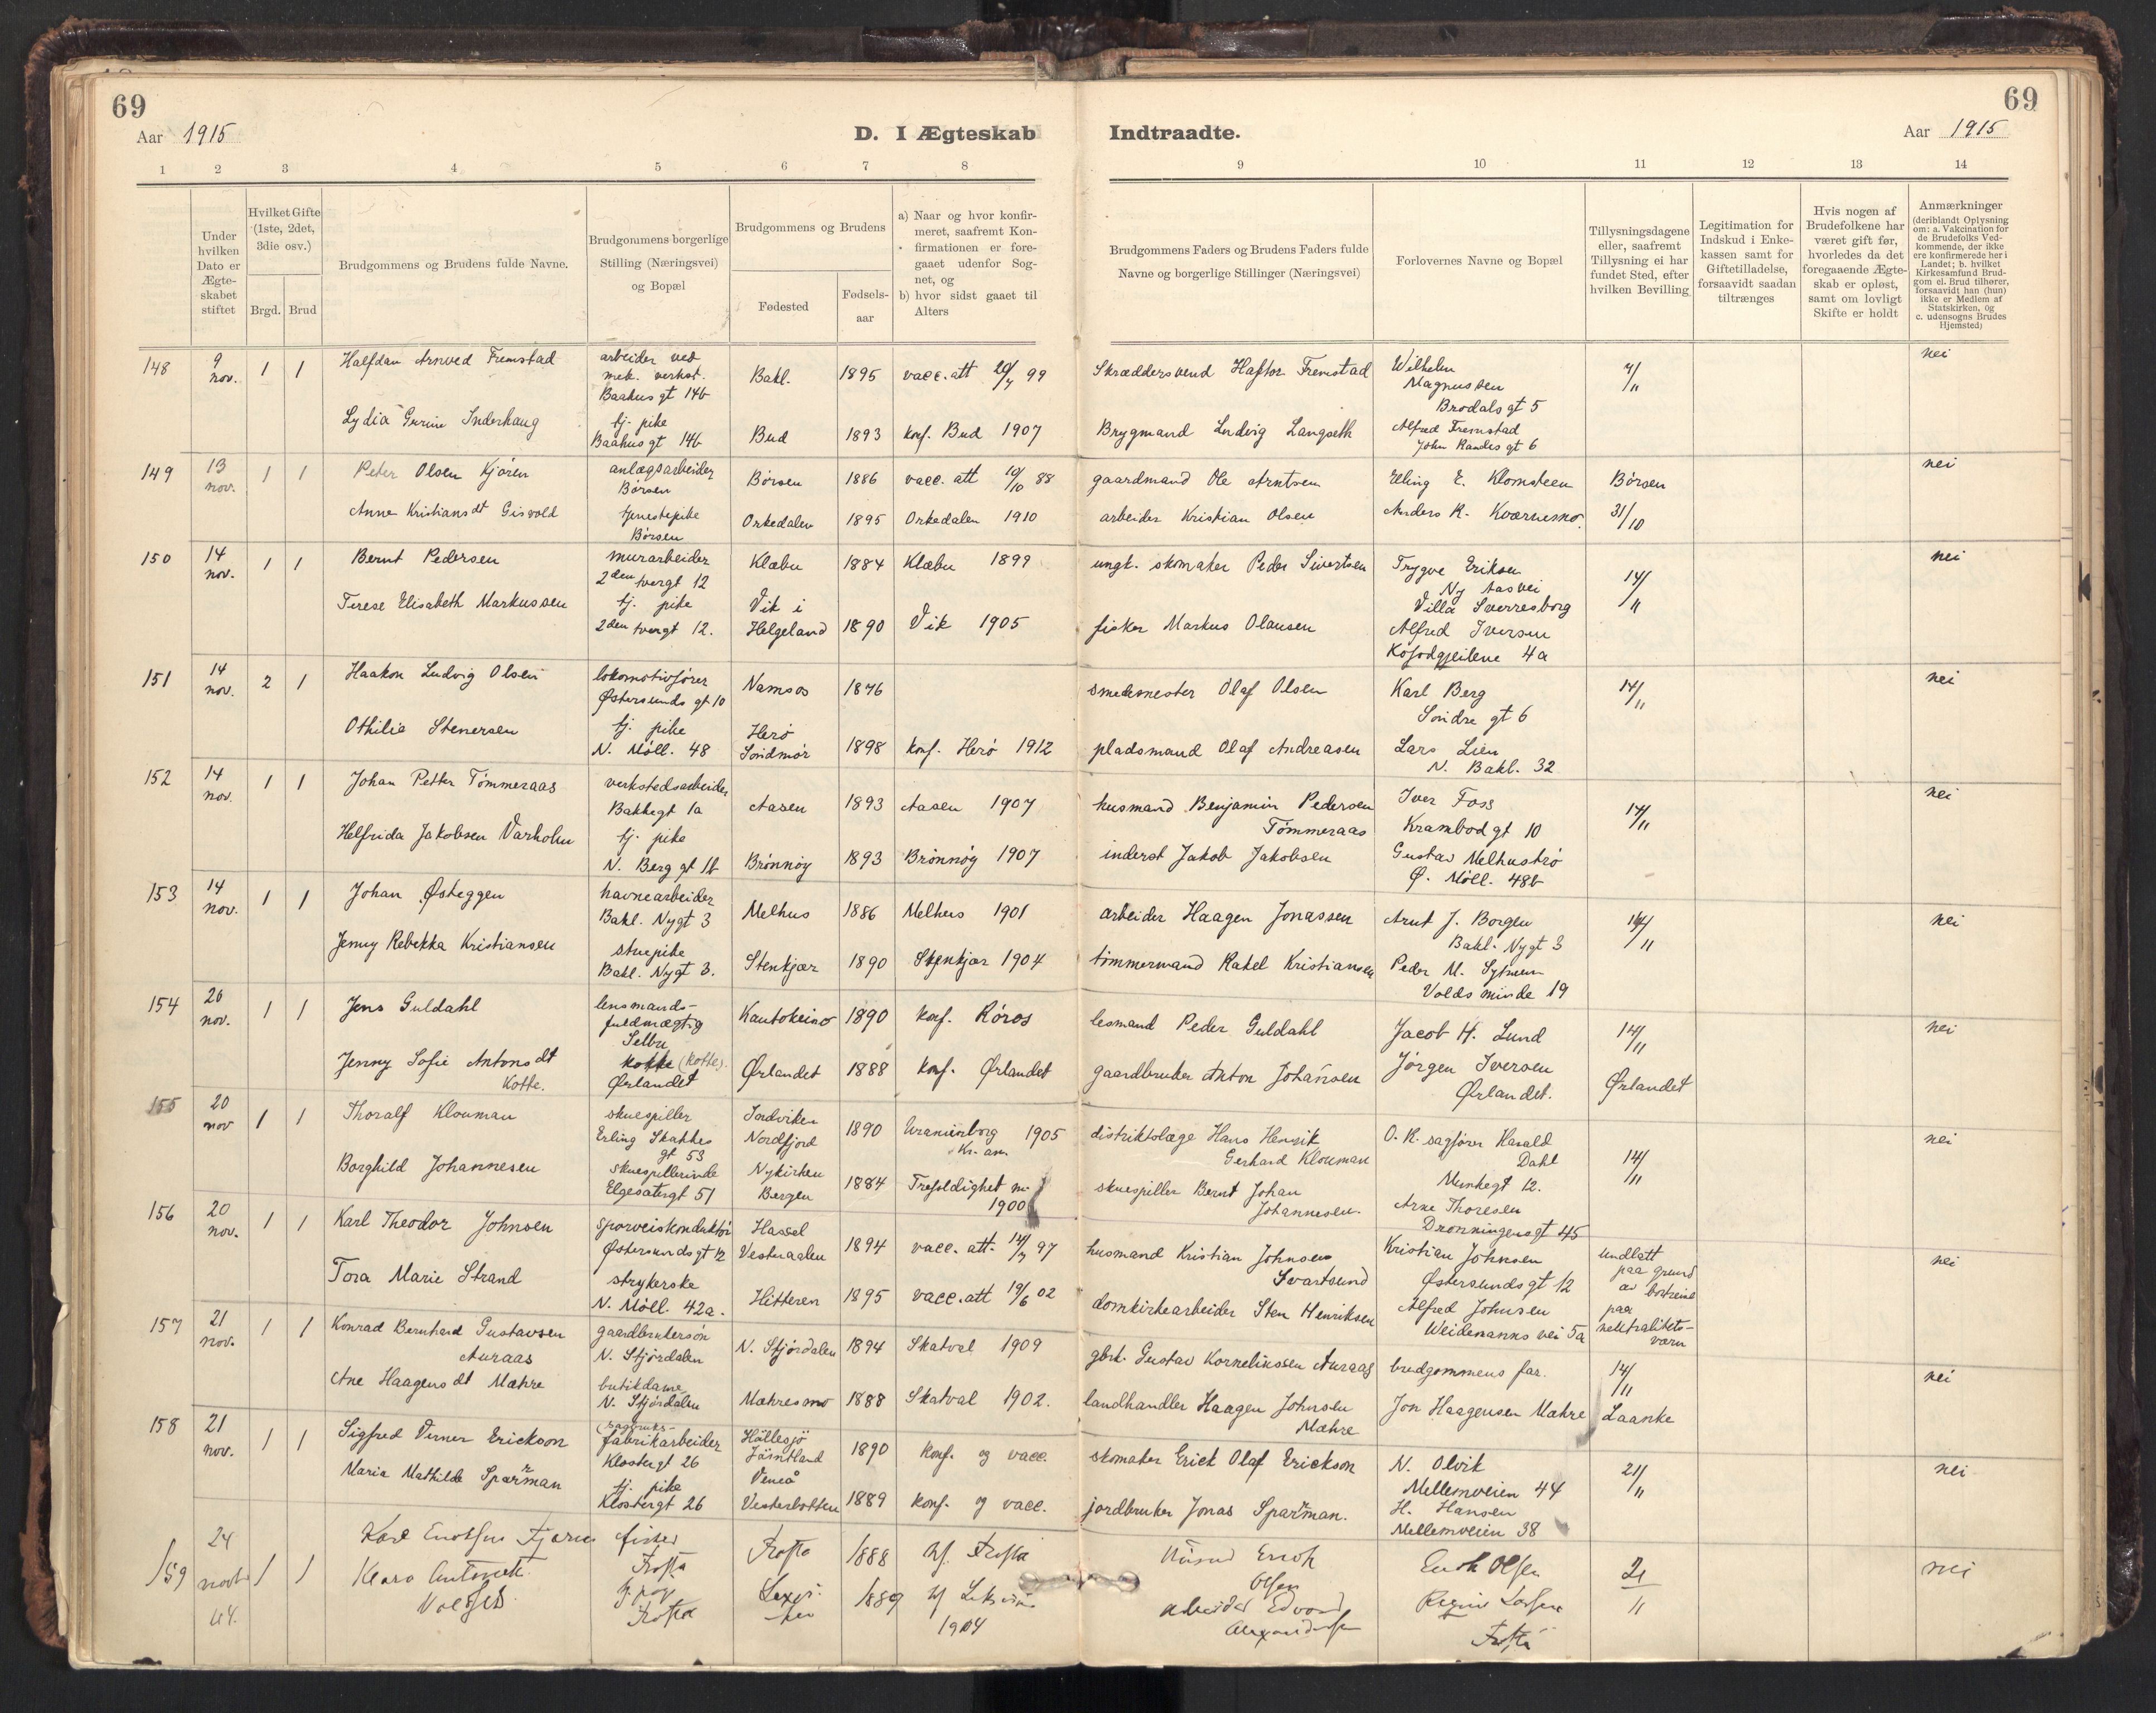 69
69
Aar 1915
D. I Ægteskab
Indtraadte.
Aar 1915
1 2 3 4 5 6 7 8 9 10 11 12 13 14
Under hvilken Dato er Ægte-skabet stiftet
Hvilket Gifte (1ste, 2det, 3die osv.)
Brgd. Brud
Brudgommens og Brudens fulde Navne.
Brudgommens borgerlige Stilling (Næringsvei) og Bopæl
Brudgommens og Brudens
Fødested
Fødsels-aar
a) Naar og hvor konfir-meret, saafremt Kon-firmationen er fore-gaaet udenfor Sog-net, og
b) hvor sidst gaaet til Alters
Brudgommens Faders og Brudens Faders fulde Navne og borgerlige Stillinger (Næringsvei)
Forlovernes Navne og Bopæl
Tillysningsdagene eller, saafremt Tillysning ei har fundet Sted, efter hvilken Bevilling
Legitimation for Indskud i Enke-kassen samt for Giftetilladelse, forsaavidt saadan tiltrænges
Hvis nogen af Brudefolkene har været gift før, hvorledes da det foregaaende Ægte-skab er opløst, samt om lovligt Skifte er holdt
Anmærkninger (deriblandt Oplysning om: a. Vakcination for de Brudefolks Ved-kommende, der ikke ere konfirmerede her i Landet; b. hvilket Kirkesamfund Brud-gom el. Brud tilhører, forsaavidt han (hun) ikke er Medlem af Statskirken, og c. udensogns Brudes Hjemsted)
148 9 nov. 1 1 Halfdan Arnved Fremstad arbeider ved mek. verkst. Baahus gt 14b Bakl. 1895 vacc. att 99 Skræddersvend Haftor Fremstad Wilhelm Magnussen Brodals gt 5 7/11 nei
Lydia Gurine Inderhaug tj. pike Baahus gt 14b Bud 1893 konf. Bud 1907 Brygmand Ludvig Langseth Alfred Fremstad John Randes gt 6
149 13 nov. 1 1 Peter Olsen Kjøren anlægsarbeider Børsen Børsen 1886 vacc. att 10/10 88 gaardmand Ole Arntsen Elling E. Klomsteen Børsen nei
Anne Kristiansdt Gisvold tjenestepike Børsen Orkedalen 1895 Orkedalen 1910 arbeider Kristian Olsen Anders K. Kværnemo. 31/10
150 14 nov. 1 1 Bernt Pedersen murarbeider 2den tvergt 12 Klæbu 1884 Klæbu 1899 ungk. skomaker Peder Sivertsen Trygve Eriksen Ny Aasvei Villa Sverresborg 14/11 nei
Terese Elisabeth Markussen tj. pike 2den tvergt 12. Vik i Helgeland 1890 Vik 1905 fisker Markus Olausen Alfred Iversen Kofodgjeilene 4a
151 14 nov. 2 1 Haakon Ludvig Olsen lokomotivfører Østersunds gt 10 Namsos 1876 smedmester Olaf Olsen Karl Berg Søndre gt 6 14/11 nei
Othilie Stenersen tj. pike N. Möll. 48 Herö Söndmör 1898 konf. Herö 1912 pladsmand Olaf Andreasen Lars Lien N. Bakl. 32
152 14 nov. 1 1 Johan Petter Tömmeraas verkstedsarbeider Bakkegt 1a Aasen 1893 Aasen 1907 husmand Benjamin Pedersen Tömmeraas Iver Foss Krambodgt 10 14/11 nei
Helfrida Jakobsen Varholm tj. pike N. Berg gt 1b Brönnöy 1893 Brönnöy 1907 inderst Jakob Jakobsen Gustav Melhuströ Ø. Möll. 48b
153 14 nov. 1 1 Johan Østeggen havnearbeider Bakl. Nygt 3 Melhus 1886 Melhus 1901 arbeider Haagen Jonassen Arnt J. Borgen Bakl. Nygt 3 14/11 nei
Jenny Rebekka Kristiansen stuepike Bakl. Nygt 3. Stenkjær 1890 Stenkjær 1904 tömmermand Rakel Kristiansen Peder M. Voldsminde 19
154 26 nov. 1 1 Jens Guldahl lensmands-fuldmægtig Selbu Kautokeino 1890 konf. Röros lesmand Peder Guldahl Jacob H. Lund 14/11 nei
Jenny Sofie Antonsdt Kotte. (Kotte). Ørlandet Ørlandet 1888 konf. Ørlandet gaardbruker Anton Johansen Jörgen Iversen Ørlandet. Ørlandet
155 20 nov 1 1 Thoralf Klouman skuespiller Erling Skakkes gt 53 Nordfjord 1890 Uranienborg Kr.a 1905 distriktslæge Hans Henrik Gerhard Klouman O. R. sagfører Harald Dahl Munkegt 12. 14/11 nei
Borghild Johannesen skuespillerinde Elgesætergt 51 Nykirken Bergen 1884 Trefoldighet 1900 skuespiller Bernt Johan Johannesen. Arne Thoresen Dronningensgt 45
156 20 nov. 1 1 Karl Theodor Johnsen sporveiskonduktör Østersundsgt 12 Hassel Vesteraalen 1894 vacc. att. 97 husmand Kristian Johnsen Svartsund Kristian Johnsen Østersundsgt 12 undlatt paa grund av nei
Tora Marie Strand strykerske N. Möll. 42a. Hitteren 1895 vacc. att 19/6 02 domkirkearbeider Sten Henriksen Alfred Johnsen Weidemanns vei 5a paa neutralitets-værn
157 21 nov. 1 1 Konrad Bernhard Gustavsen Auraas gaardbrukersön N. Stjördalen N. Stjördalen 1894 Skatval 1909 gbrk. Gustav Kornelinssen Auraas brudgommens far. 14/11 nei
Ane Haagensdt Mæhre butikdame N. Stjördalen Mæhresmo 1888 Skatval 1902. landhandler Haagen Johnsen Mæhre Jon Haagensen Mæhre Laanke
158 21 nov. 1 1 Sigfred Verner Erickson fabrikarbeider Klostergt 26 Hällesjö Jämtland 1890 konf. og vacc. skomaker Erick Olaf Erickson N. Olvik Mellemveien 44 21/11 nei
Maria Mathilde Sparrman tj. pike Klostergt 26 Vesterbotten 1889 konf. og vacc. jordbruker Jonas Sparrman. H. Hansen Mellemveien 38
159 24 1 1 fisker Frosta Frosta 1888 Frosta Olsen Enok Olsen 21/11 nei
Klara Frosta 1889 1904 arbeider Edvard Frosta